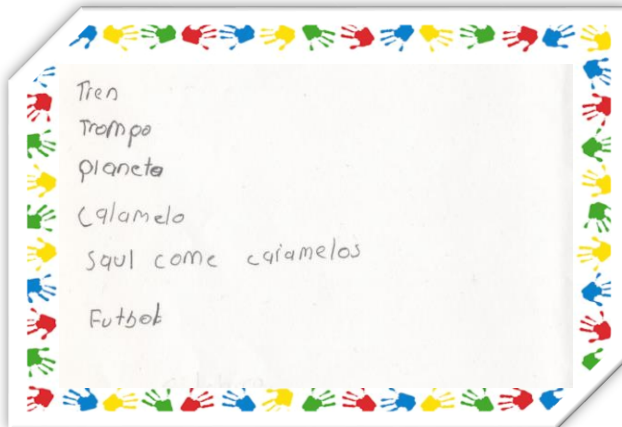 Tren
Trompo
planeta
calamelo
saul come caramelos
Futbol